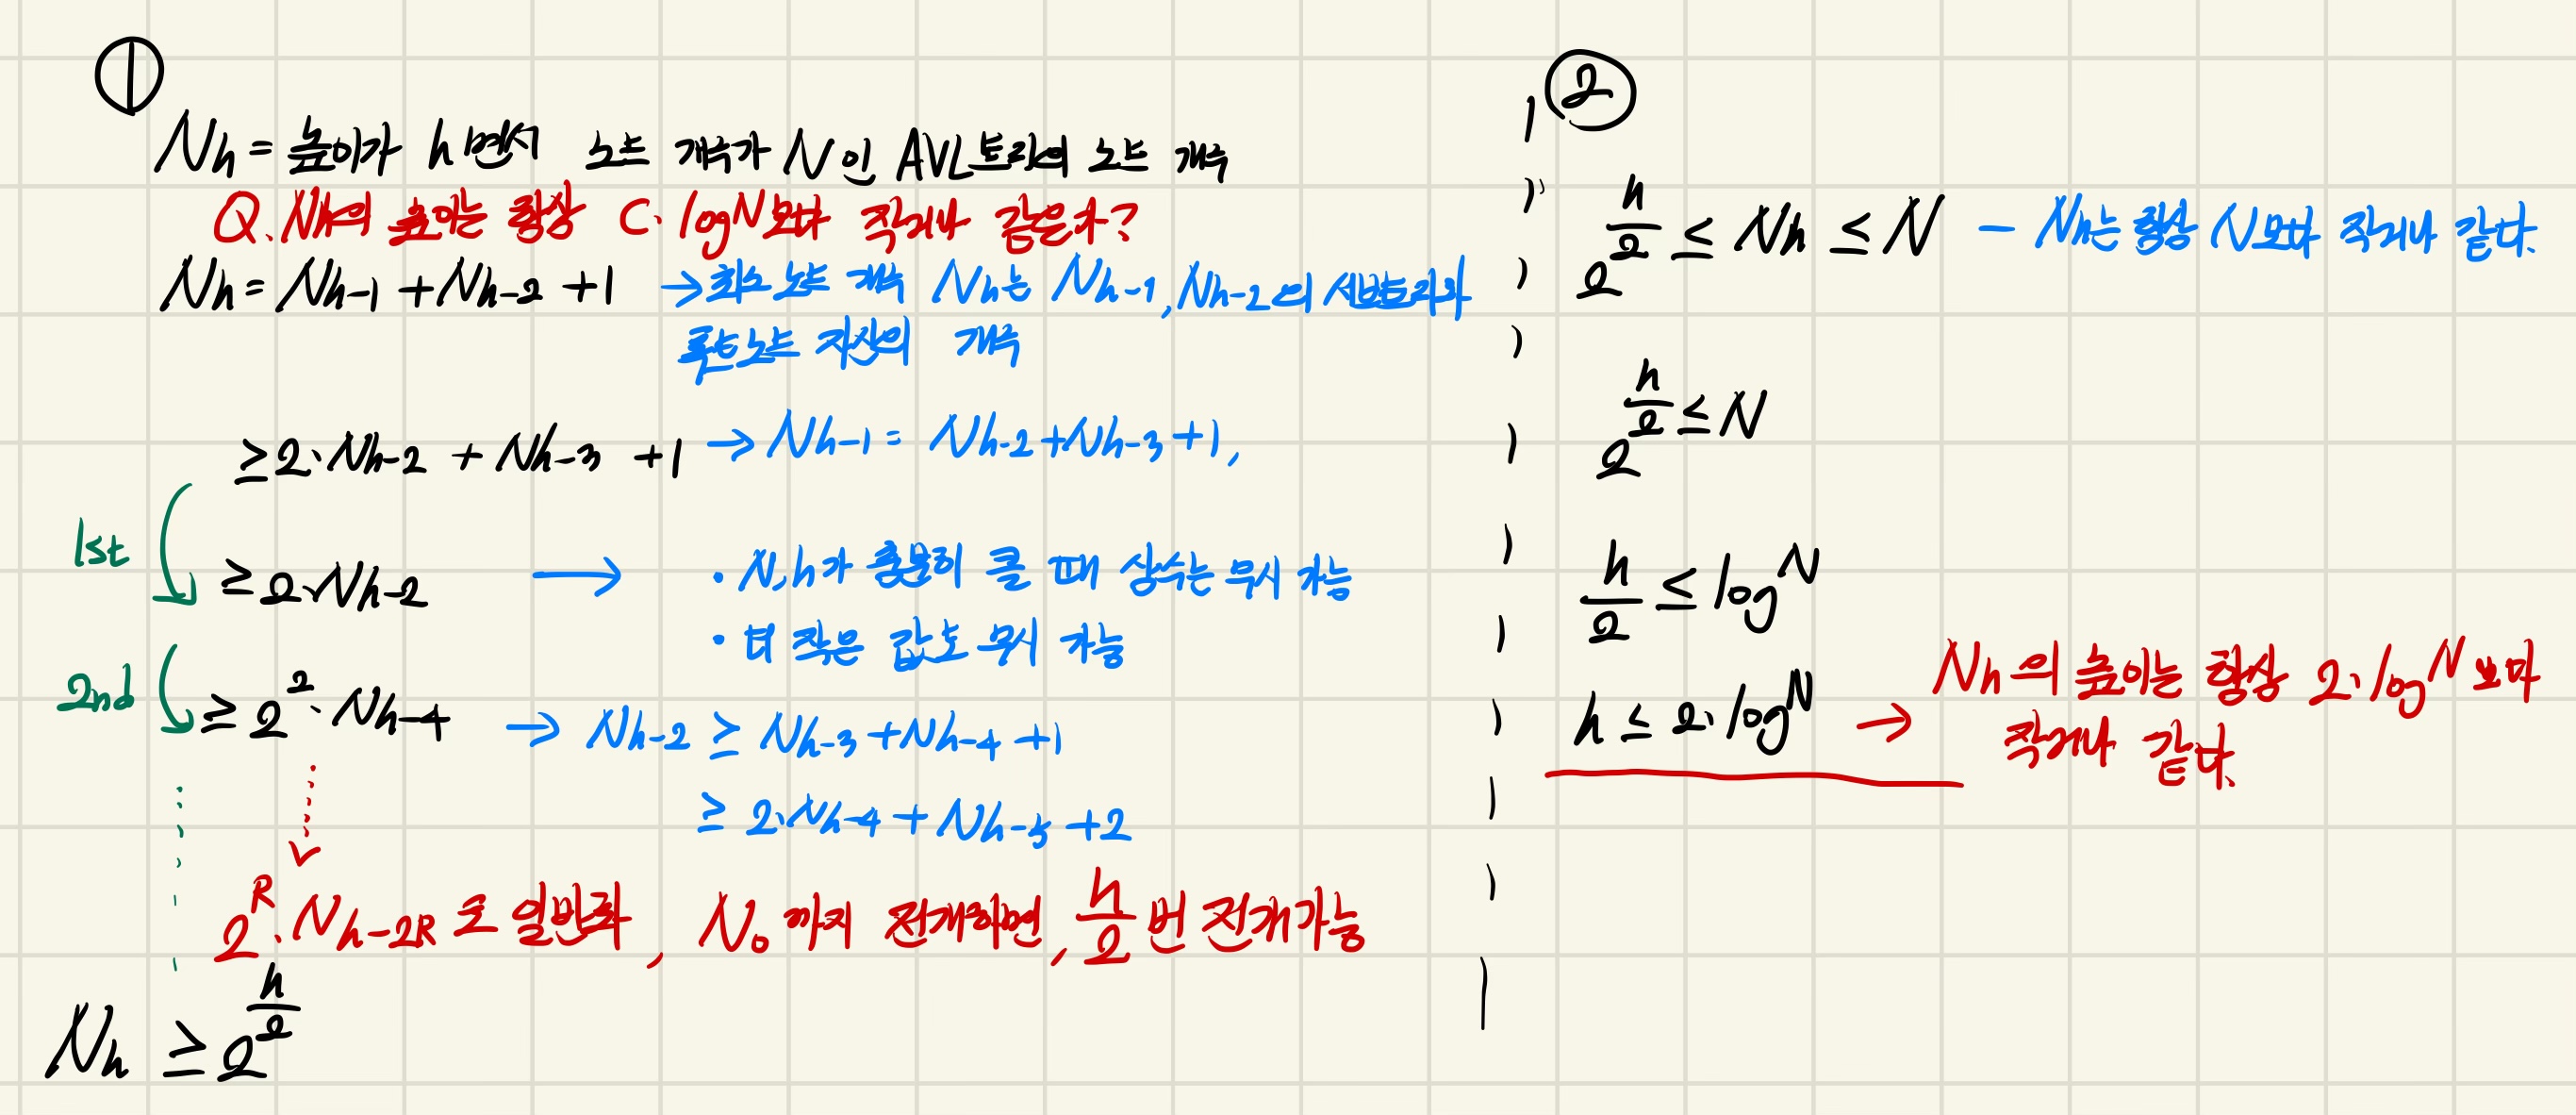 ①
Nh = 높이가 h 면서 노드 개수가 N 인 AVL트리의 노드 개수
Q. Nh의 높이는 항상 C·logN보다 작거나 같은가?
Nh = Nh-1 + Nh-2 + 1 → 최소 노드 개수 Nh는 Nh-1, Nh-2의 서브트리와
루트노드 자신의 개수
≥ 2·Nh-2 + Nh-3 + 1 → Nh-1 = Nh-2 + Nh-3 + 1,
1st ≥ 2·Nh-2 → · N, h가 충분히 클 때 상수는 무시 가능
· 더 작은 값도 무시 가능
2nd ≥ 2^2·Nh-4 → Nh-2 ≥ Nh-3 + Nh-4 + 1
≥ 2·Nh-4 + Nh-5 + 2
2^R·Nh-2R 로 일반화, N₀ 까지 전개하면, h/2 번 전개가능
Nh ≥ 2^(h/2)
②
2^(h/2) ≤ Nh ≤ N - Nh는 항상 N보다 작거나 같다.
2^(h/2) ≤ N
h/2 ≤ logN
h ≤ 2·logN → Nh의 높이는 항상 2·logN 보다
작거나 같다.